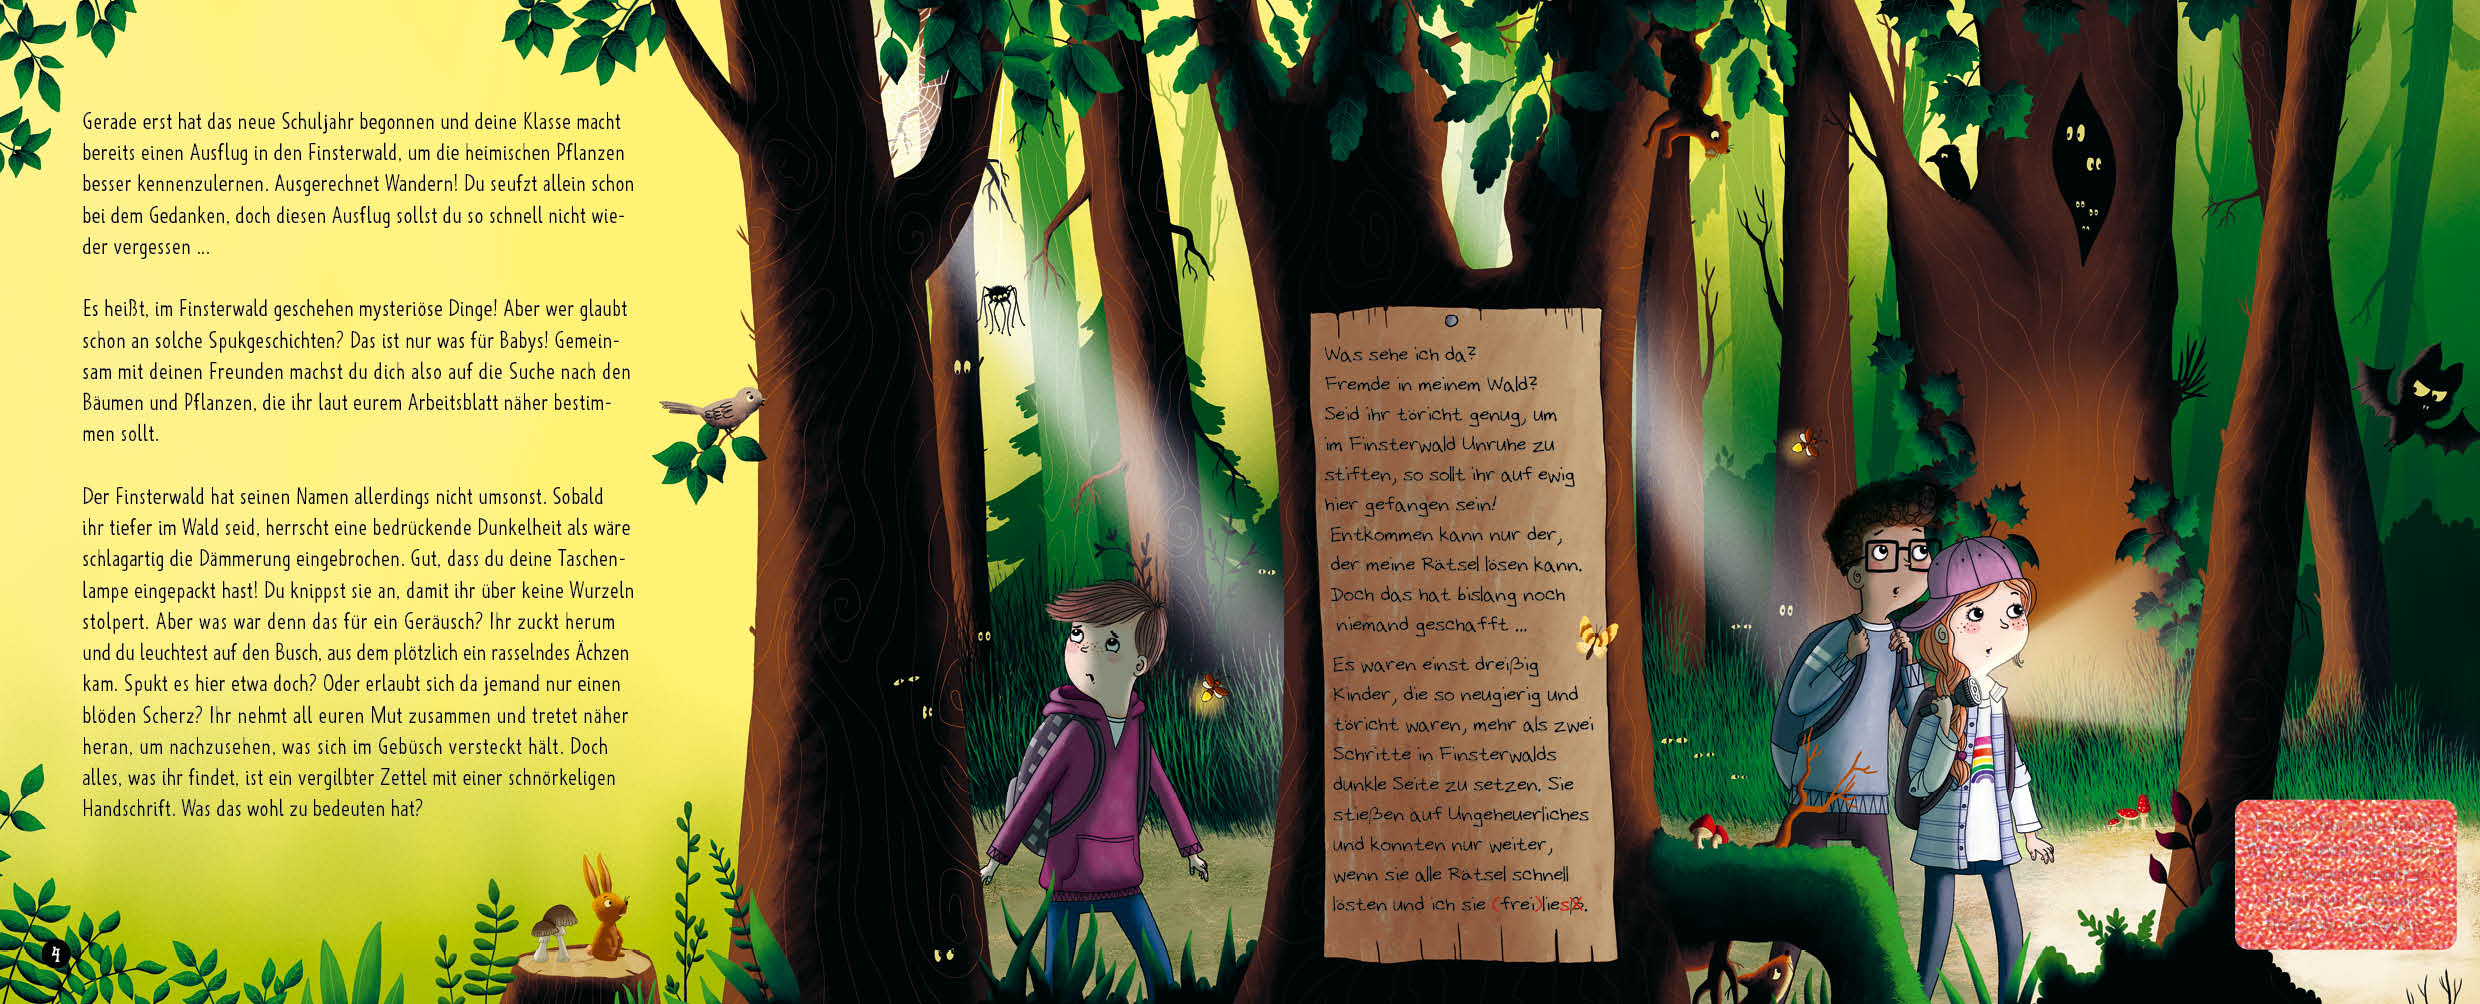 Gerade erst hat das neue Schuljahr begonnen und deine Klasse macht
bereits einen Ausflug in den Finsterwald, um die heimischen Pflanzen
besser kennenzulernen. Ausgerechnet Wandern! Du seufzt allein schon
bei dem Gedanken, doch diesen Ausflug sollst du so schnell nicht wie-
der vergessen ...
Es heißt, im Finsterwald geschehen mysteriöse Dinge! Aber wer glaubt
schon an solche Spukgeschichten? Das ist nur was für Babys! Gemein-
sam mit deinen Freunden machst du dich also auf die Suche nach den
Bäumen und Pflanzen, die ihr laut eurem Arbeitsblatt näher bestim-
men sollt.
Der Finsterwald hat seinen Namen allerdings nicht umsonst. Sobald
ihr tiefer im Wald seid, herrscht eine bedrückende Dunkelheit als wäre
schlagartig die Dämmerung eingebrochen. Gut, dass du deine Taschen-
lampe eingepackt hast! Du knippst sie an, damit ihr über keine Wurzeln
stolpert. Aber was war denn das für ein Geräusch? Ihr zuckt herum
und du leuchtest auf den Busch, aus dem plötzlich ein rasselndes Ächzen
kam. Spukt es hier etwa doch? Oder erlaubt sich da jemand nur einen
blöden Scherz? Ihr nehmt all euren Mut zusammen und tretet näher
heran, um nachzusehen, was sich im Gebüsch versteckt hält. Doch
alles, was ihr findet, ist ein vergilbter Zettel mit einer schnörkeligen
Handschrift. Was das wohl zu bedeuten hat?
4
Was sehe ich da?
Fremde in meinem Wald?
Seid ihr töricht genug, um
im Finsterwald Unruhe zu
stiften, so sollt ihr auf ewig
hier gefangen sein!
Entkommen kann nur der,
der meine Rätsel lösen kann.
Doch das hat bislang noch
niemand geschafft ...
Es waren einst dreißig
Kinder, die so neugierig und
töricht waren, mehr als zwei
Schritte in Finsterwalds
dunkle Seite zu setzen. Sie
stießen auf Ungeheuerliches
und konnten nur weiter,
wenn sie alle Rätsel schnell
lösten und ich sie (frei)ließ.